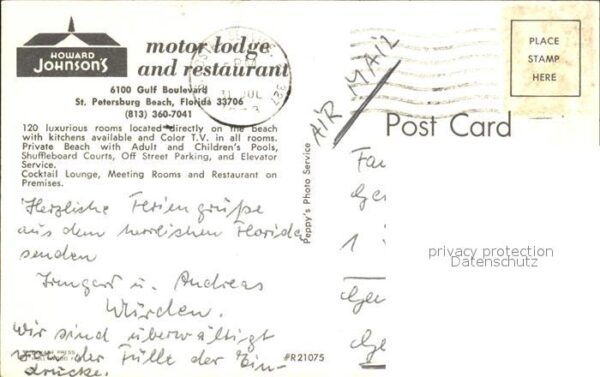 HOWARD
JOHNSON'S
motor lodge
and restaurant
6100 Gulf Boulevard
St. Petersburg Beach, Florida 33706
(813) 360-7041
120 luxurious rooms located directly on the beach
with kitchens available and Color T.V. in all rooms.
Private Beach with Adult and Children's Pools,
Shuffleboard Courts, Off Street Parking, and Elevator
Service.
Cocktail Lounge, Meeting Rooms and Restaurant on
Premises.
Herzliche Feriengrüße
aus dem herrlichen Florida
senden
Irmgard u. Andreas
Würden.
Wir sind überwältigt
von der Fülle der Ein-
drücke.
#R21075
Peppy's Photo Service
AIR MAIL
31 JUL
PLACE
STAMP
HERE
Post Card
1
privacy protection
Datenschutz